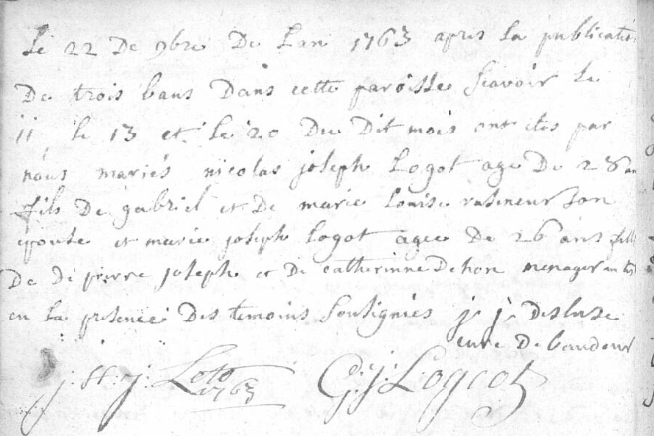 Le 22 De 9bre De Lan 1763 apres La publicatio
De trois bans Dans cette paroisse scavoir Le
ii le 13 et le 20 Du Dit mois ont etes par
nous mariés nicolas joseph Logot age De 28 an
fils De gabriel et De marie Louise ratineur son
epouse et marie joseph Logot agee De 26 ans fille
De De pierre joseph et De catherinne Dehon menager
en La presence Des temoins soussignies j: j: Desluse
cure De baudour
j: st: j: Loto 1763 G: j: Logcot